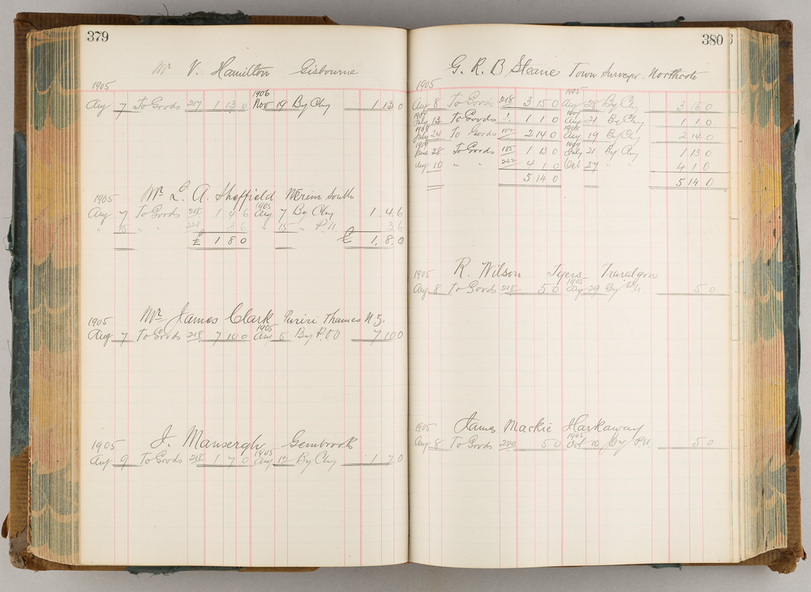 379
Mr V. Hamilton Gisbourne
1905 1906
Aug 7 To Goods 217 1 13 0 Nov 19 By Chq 1 13 0
1905 Mr L. A. Sheffield South
Aug 7 To Goods 218 1 4 6 1905 Aug 7 By Chq 1.4.6
" 15 " " 3 6 " 15 " P.N 3.6
£ 1 8 0 £ 1.8.0
1905 Mr James Clark Puriri Thames N.Z.
Aug 7 To Goods 218 7 10 0 1905 Aug 5 By P.O 7 10 0
1905 J. Mansergh Gembrook
Aug 9 To Goods 218 1 7 0 1905 Aug By Chq 1 7 0
380
G. R. B Sleane Town Surveyor Northcote
1905
Aug 8 To Goods 218 3 15 0 1905 Aug 28 By Chq 3 15 0
13 To Goods 1 1 0 Aug 21 By Chq 1 1 0
1908 24 To Goods 2 14 0 1908 Aug 19 By Chq 2 14 0
1909 28 To Goods 185 1 13 0 1909 July 21 By Chq 1 13 0
Aug 10 " " 222 4 1 0 Oct 27 " " 4 1 0
5 14 0 5 14 0
1905 R. Wilson Tyers Traralgon
Aug 8 To Goods 218 5 0 1905 Aug 29 By P.N 5 0
1905 James Mackie Harkaway
Aug 8 To Goods 220 5 0 1905 Oct 10 By P.N 5 0